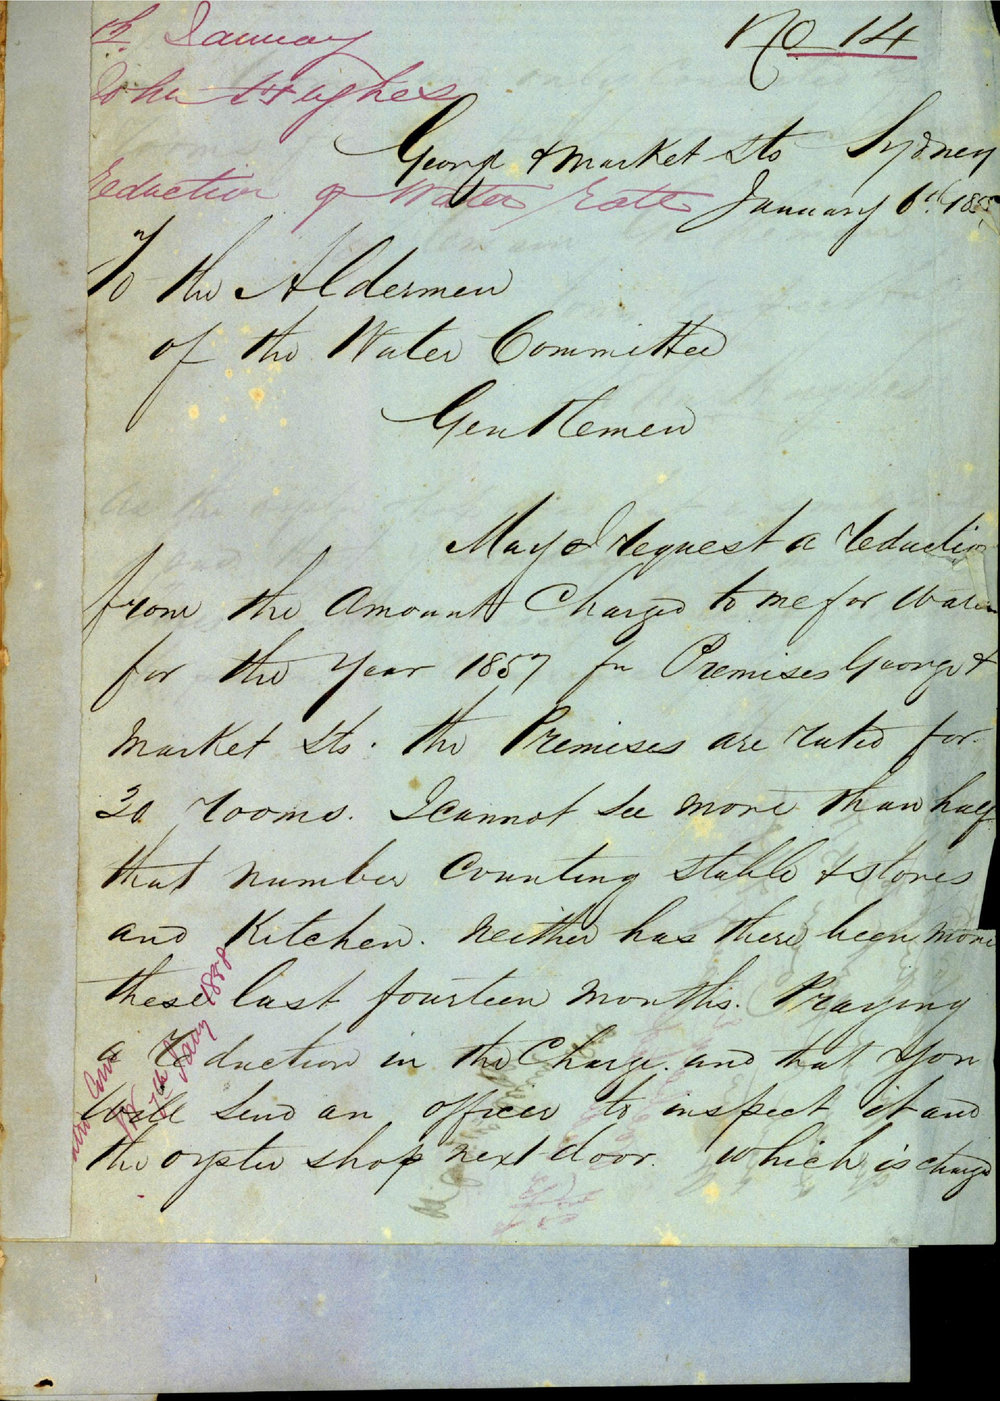 January
No 14
John Hughes
George & Market Sts Sydney
reduction of Water Rate
January 6th 185
To the Aldermen
of the Water Committee
Gentlemen
May I request a reduction
from the Amount Charged to me for Water
for the Year 1857 for Premises George &
Market Sts. the Premises are rated for
30 rooms. I cannot see more than half
that number Counting stable & stores
and Kitchen. Neither has there been more
these last fourteen months. Praying
a reduction in the Charge. and that You
Will send an officer to inspect it and
the oyster shop next door. which is charged
7th Jany 1858